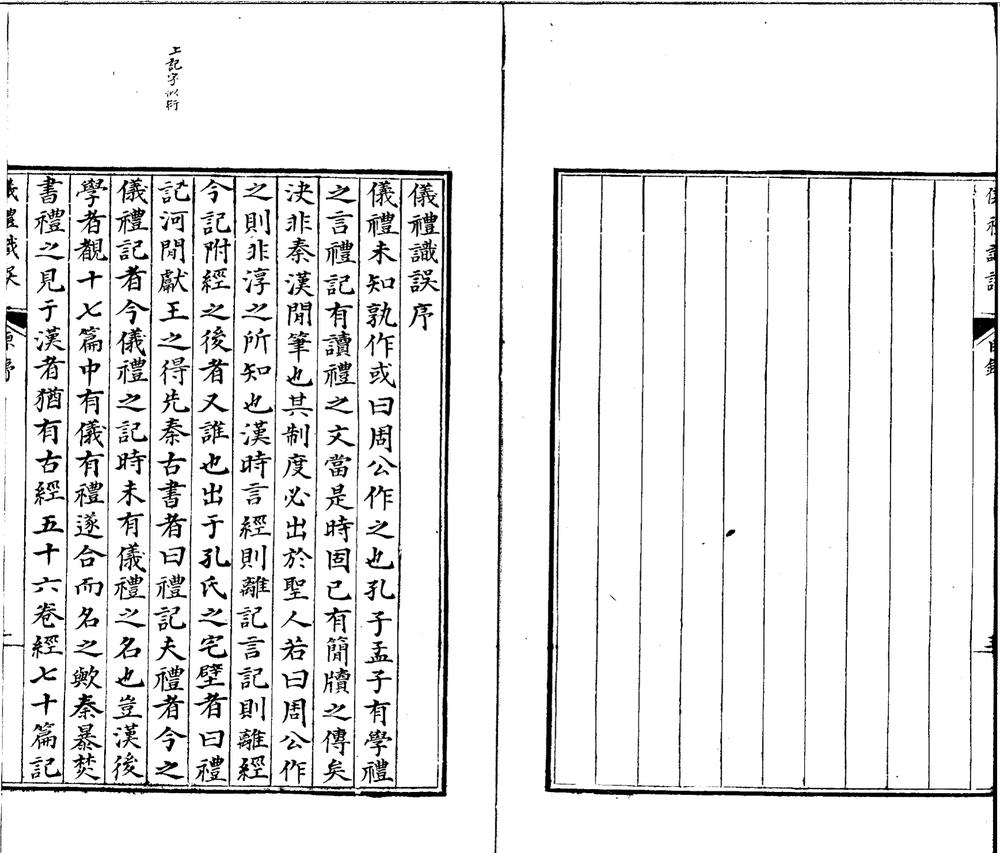 目錄
儀禮識誤序
儀禮未知孰作或曰周公作之也孔子孟子有學禮
之言禮記有讀禮之文當是時固已有簡牘之傳矣
決非秦漢閒筆也其制度必出於聖人若曰周公作
之則非淳之所知也漢時言經則離記言記則離經
今記附經之後者又誰也出于孔氏之宅壁者曰禮
記河閒獻王之得先秦古書者曰禮記夫禮者今之
儀禮記者今儀禮之記時未有儀禮之名也豈漢後
學者覩十七篇中有儀有禮遂合而名之歟秦暴焚
書禮之見于漢者猶有古經五十六卷經七十篇記
上記字似衍
儀禮識誤
原序